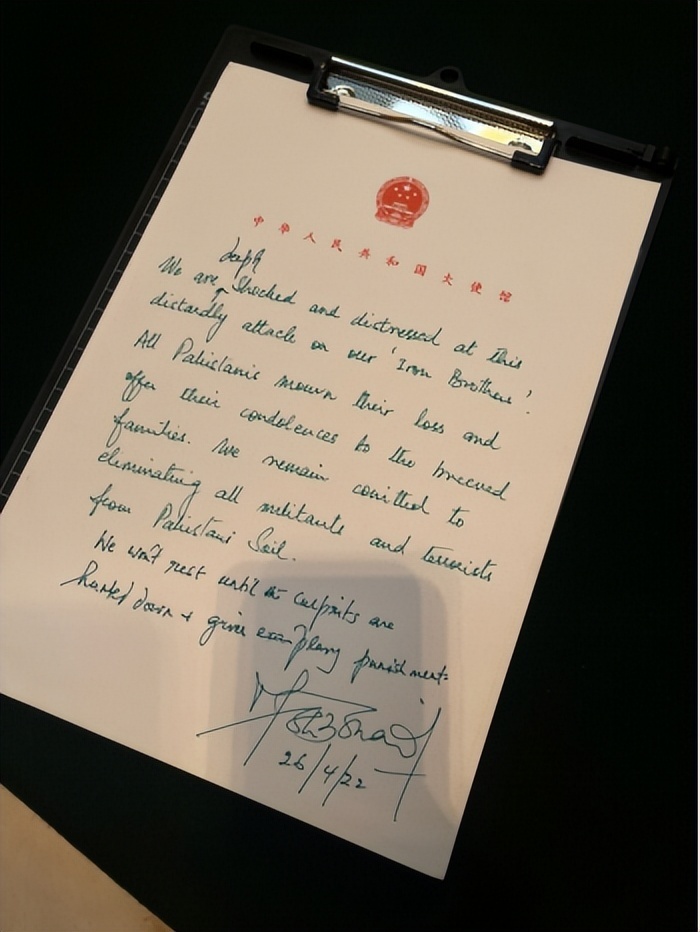 中华人民共和国大使馆
deeply
We are ^ Shocked and distressed at this
distardly attack on our 'Iron Brothers'.
All Pakistanis mourn their loss and
offer their condolences to the breeved
families. We remain comitted to
eliminating all militants and terrorists
from Pakistani Soil.
We won't rest until culprits are
hunted down + given exemplary punishment.
26/4/22